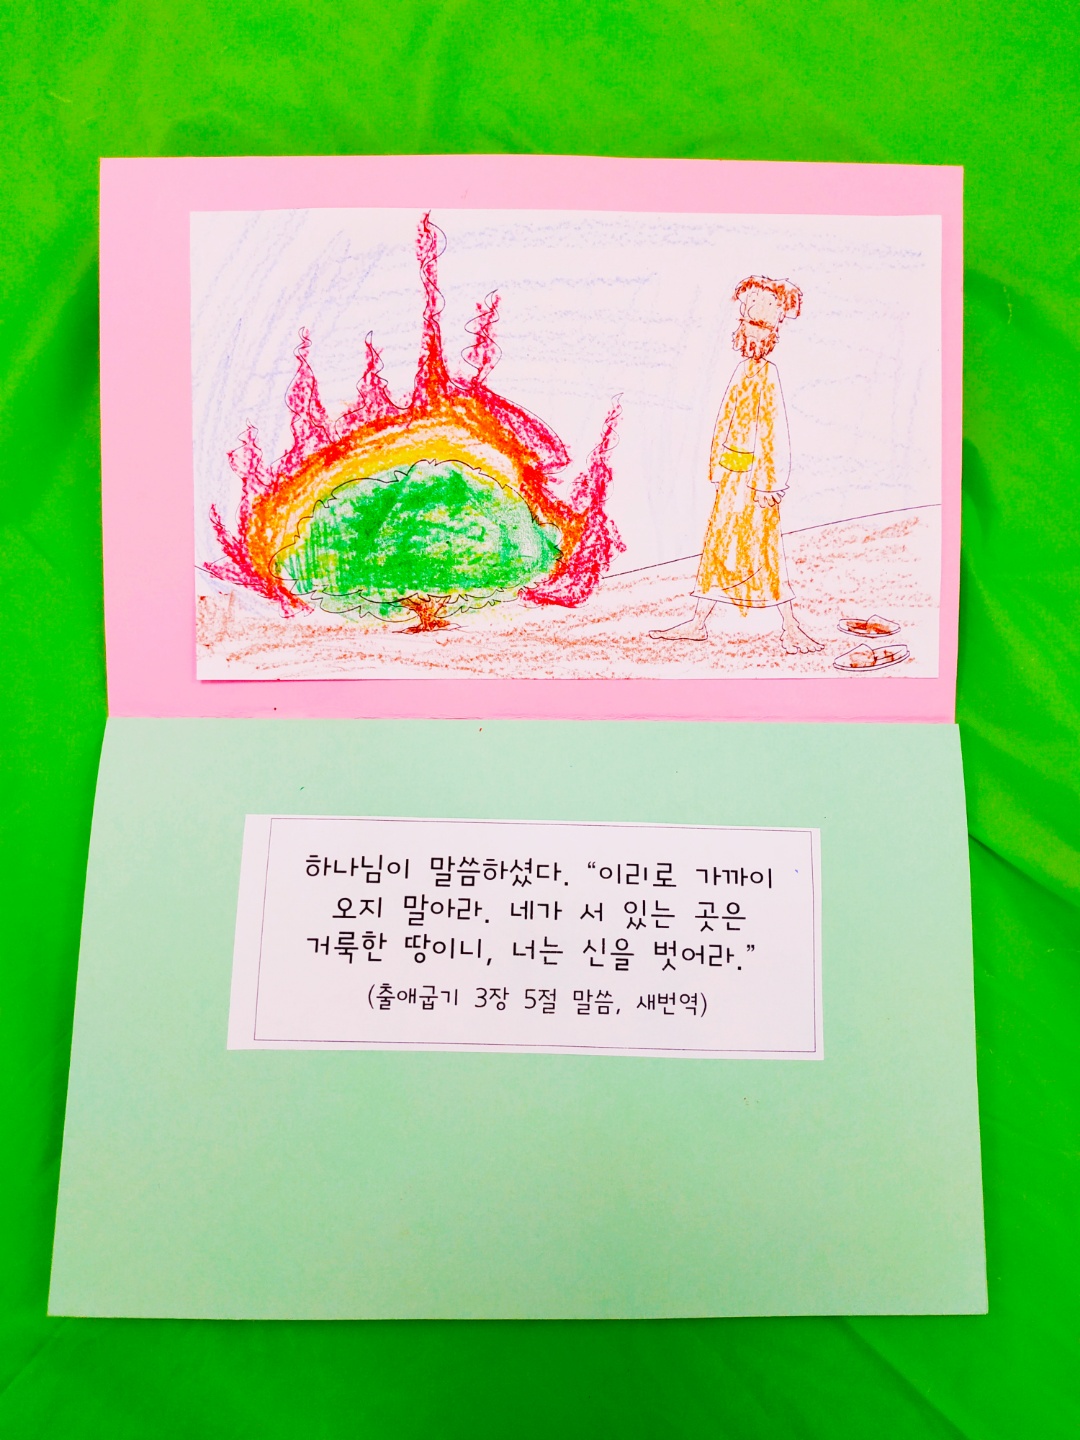 하나님이 말씀하셨다. “이리로 가까이
오지 말아라. 네가 서 있는 곳은
거룩한 땅이니, 너는 신을 벗어라.”
(출애굽기 3장 5절 말씀, 새번역)